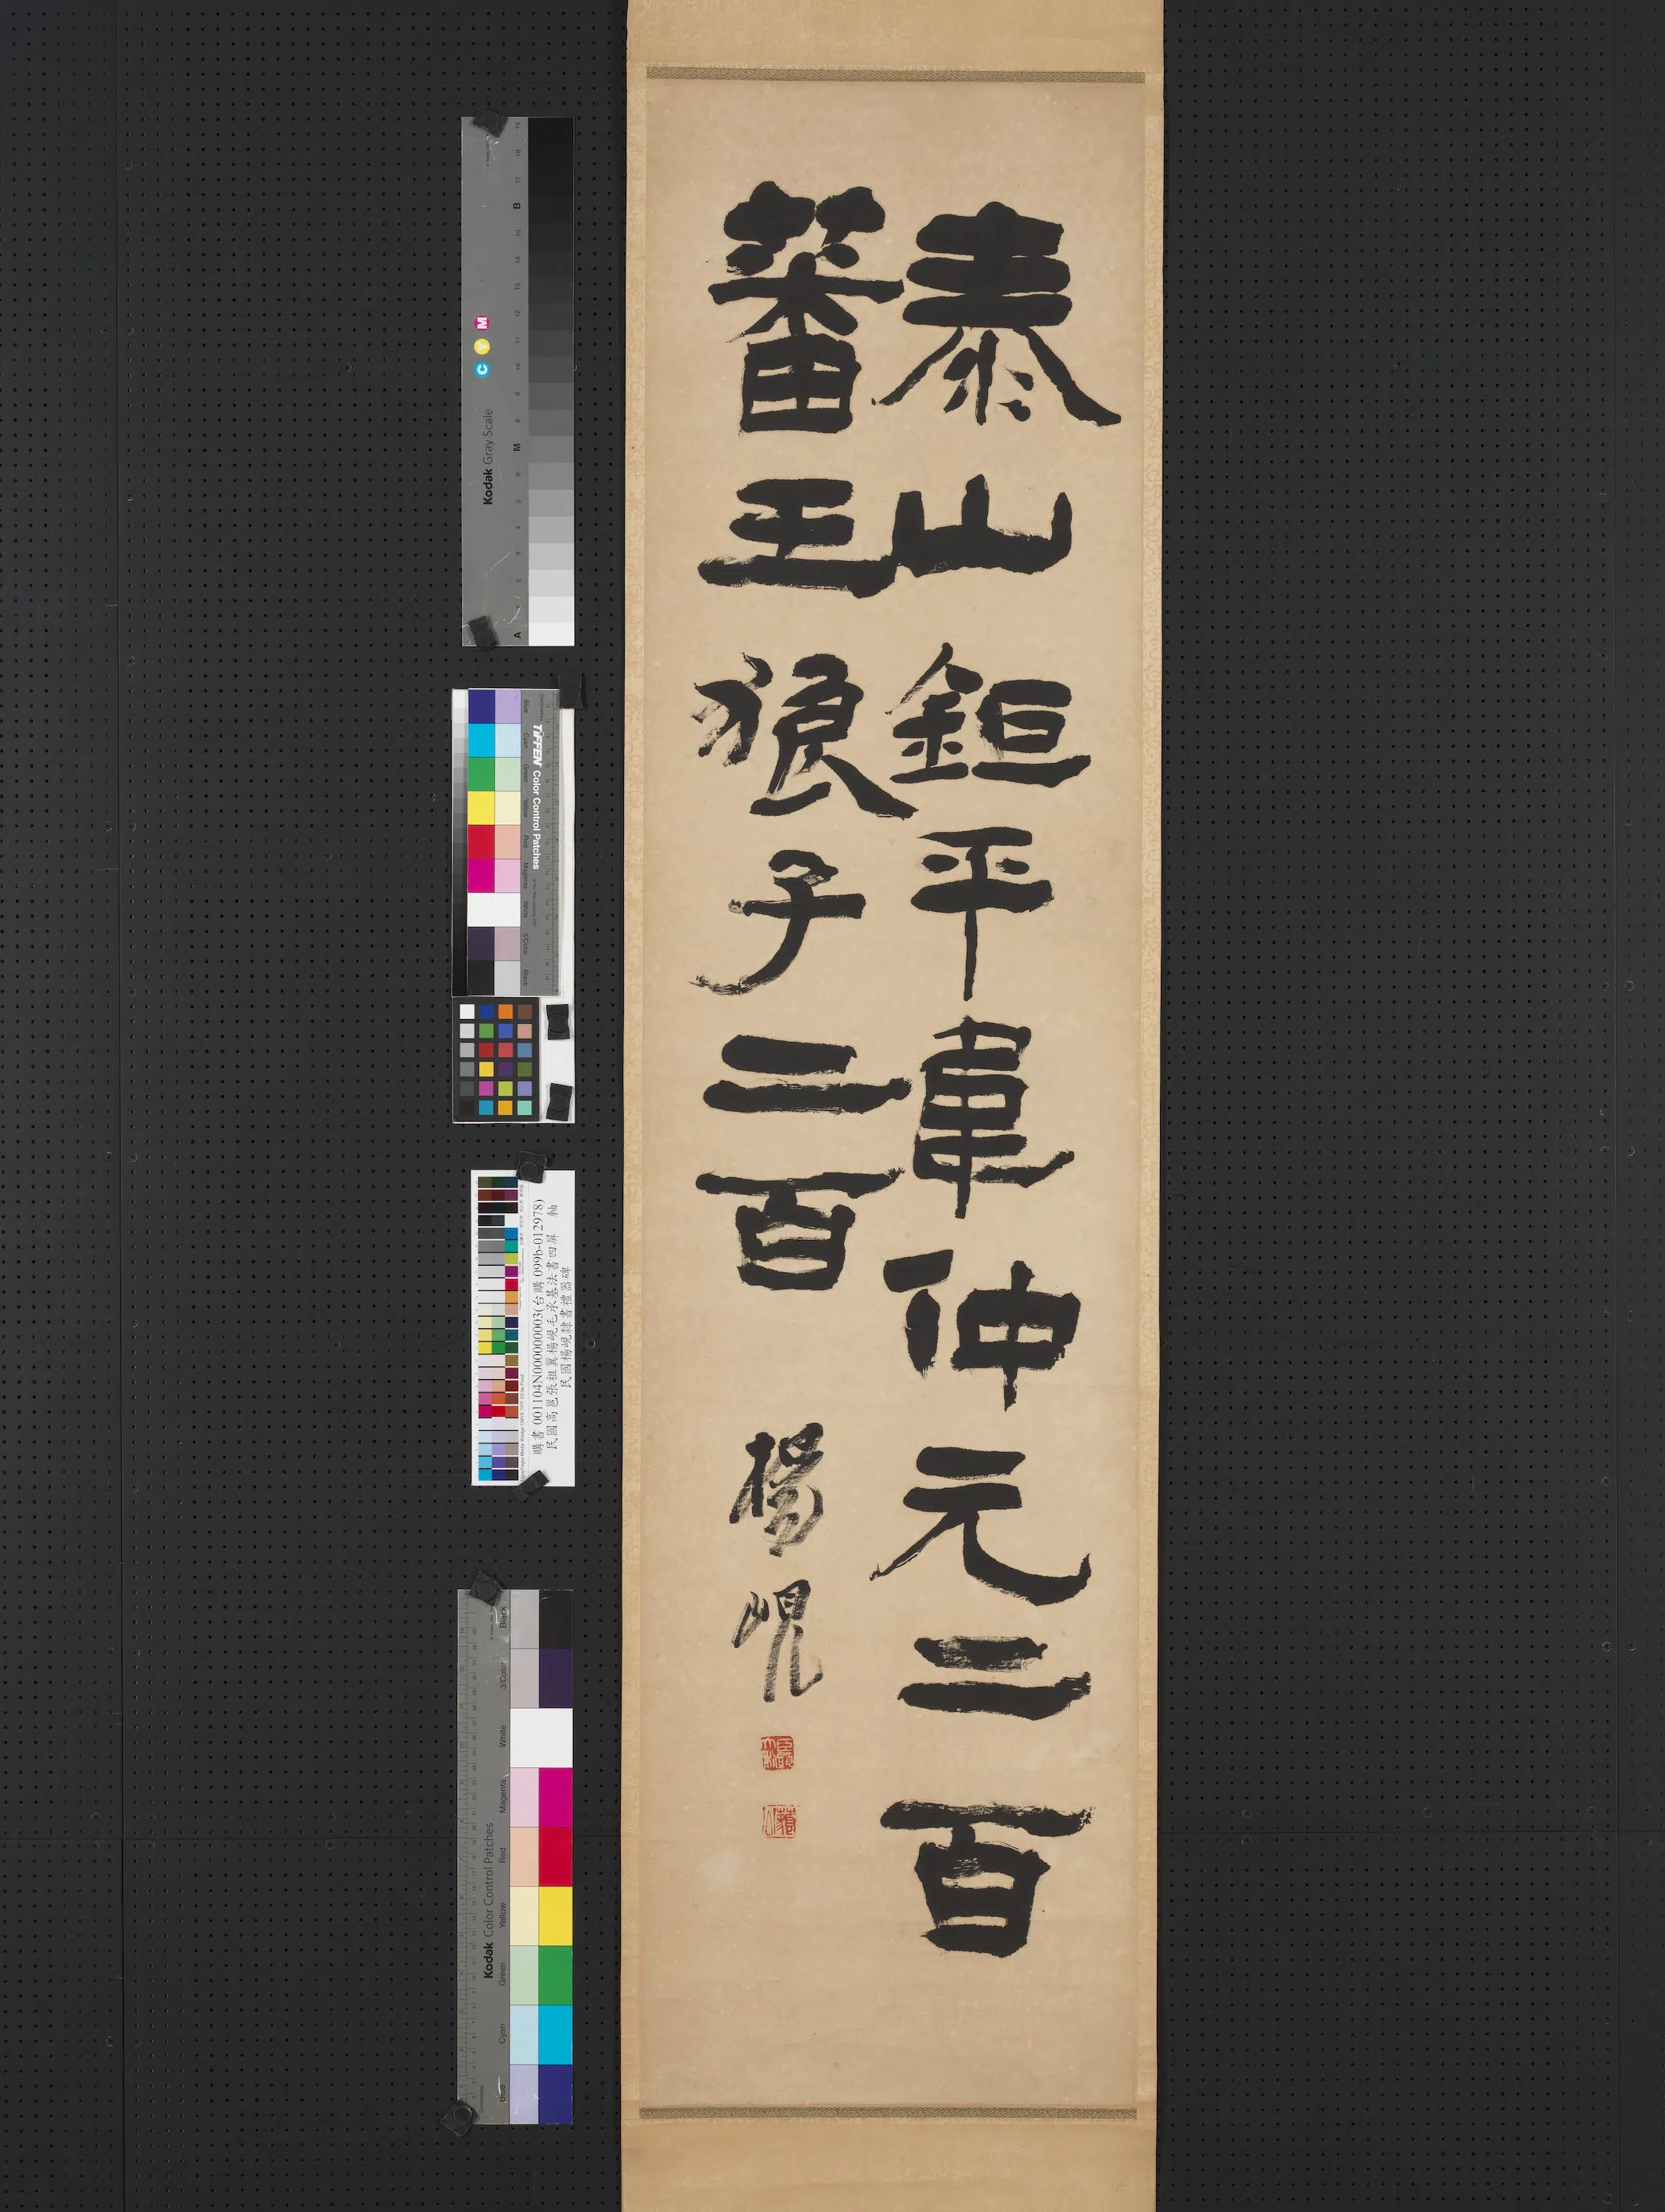 泰山鉅平韋仲元二百
蕃王狼子二百
楊峴
Kodak Gray Scale
C Y M
A
M
B
TIFFEN Color Control Patches
Blue
Cyan
Green
Yellow
Red
Magenta
White
3/Color
Black
購書 001104N000000003(台購 099b-012978)
民國高邕張祖翼楊峴毛承基法書四屏 軸
民國楊峴隸書禮器碑
Kodak Color Control Patches
Blue
Cyan
Green
Yellow
Red
Magenta
White
3/Color
Black